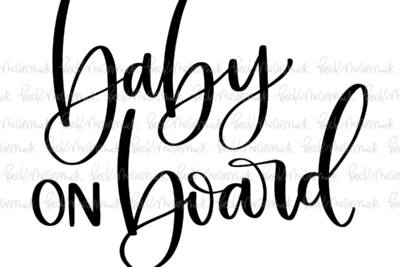 baby
ON board